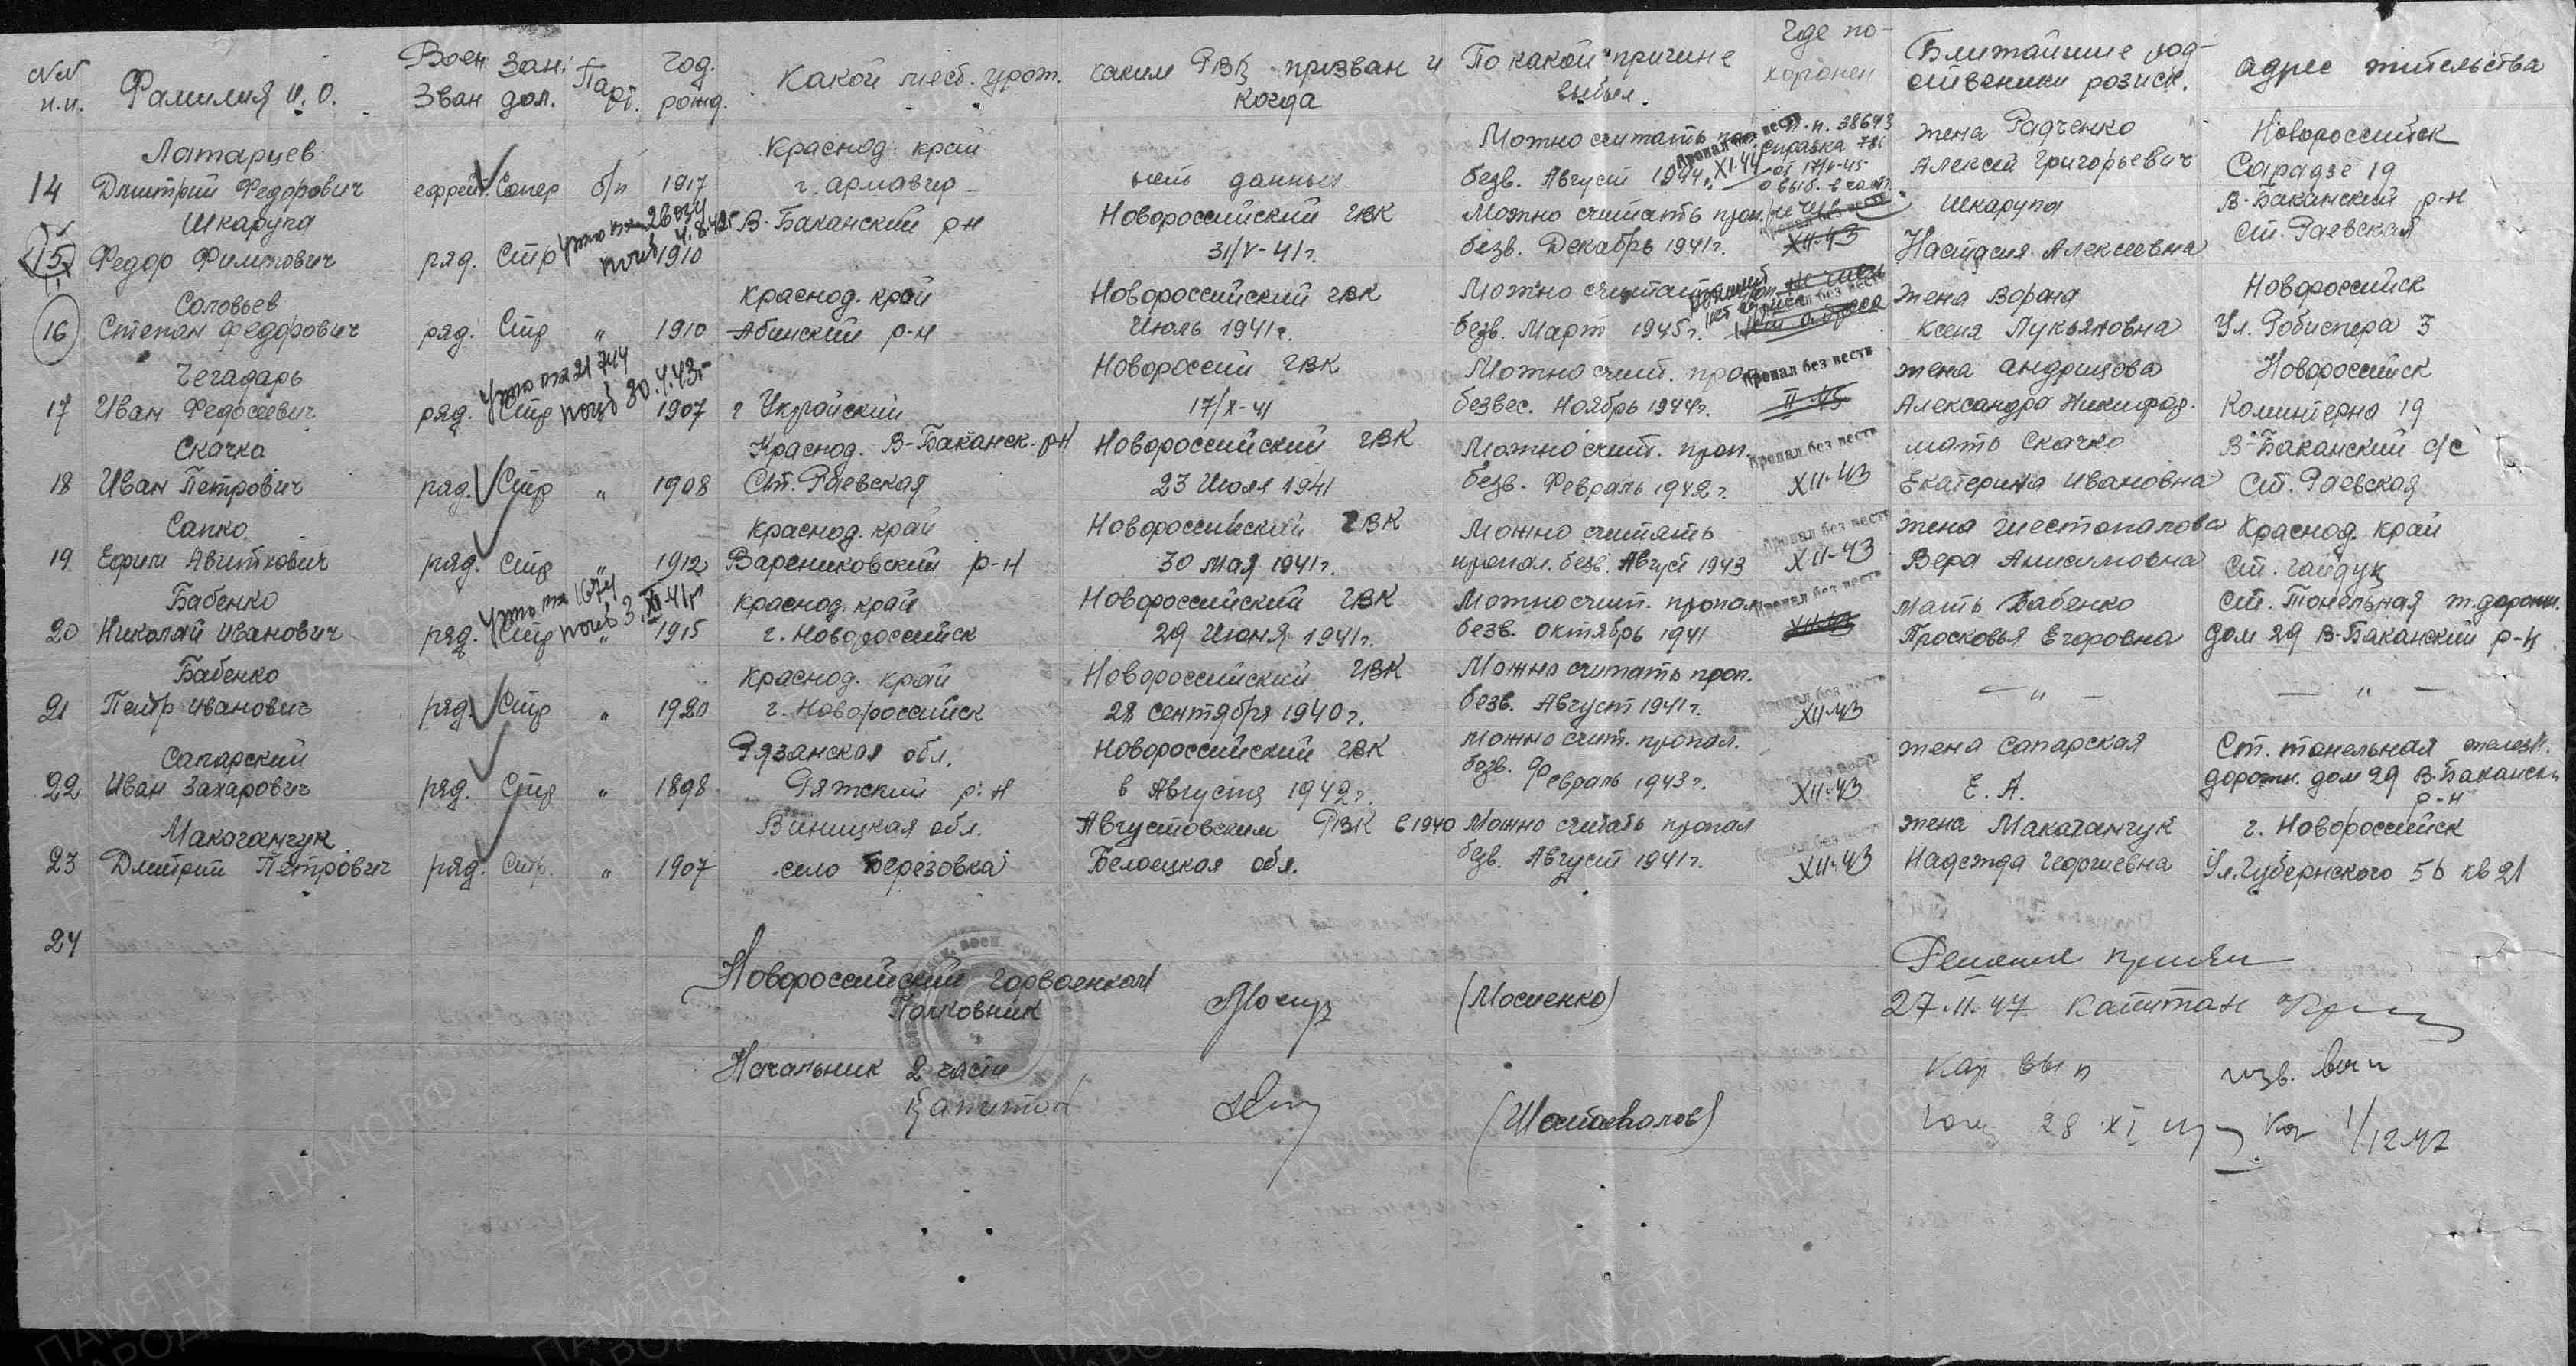 NN п.п. Фамилия И. О. Воен Зван Зан. дол. Парт. год. рожд. Какой мест. урож. каким РВК призван и когда По какой причине выбыл. Где похоронен Ближайшие родственики розиск. адрес жительства
14 Латарцев Дмитрий Федорович ефрейт. Сапер б/п 1917 Краснод. край г. Армавир нет данных Можно считать проп. безв. Август 1944г. Пропал без вести XI.44 п.п. 38643 справка жена Радченко Алексей Григорьевич Новороссийск
15 Шкарупа Федор Филипович ряд. Стр 1910 В-Баканский р-н Новороссийский ГВК 31/V-41г. Можно считать проп. безв. Декабрь 1941г. XII-43 Шкарупа Настасия Алексеевна В-Баканский р-н ст. Раевская
16 Соловьев Степан Федорович ряд. Стр " 1910 Краснод. край Абинский р-н Новороссийский ГВК Июль 1941г. Можно считать безв. Март 1945г. жена Ворона Ксеня Лукьяновна Новороссийск Ул. Робиспера 3
17 Чегадарь Иван Федосеевич ряд. Стр погиб 30.4.43г 1907 г Украйский Новороссий ГВК 17/X-41 Можно счит. проп. безвес. Ноябрь 1944г. Пропал без вести II-45 жена андрицова Александра Никифор. Новороссийск Коминтерна 19
18 Скачко Иван Петрович ряд. Стр " 1908 Краснод. В-Баканск. р-н Ст. Раевская Новороссийский ГВК 23 Июля 1941 Можно счит. проп. безв. Февраль 1942г. Пропал без вести XII-43 мать Скачко Екатерина Ивановна В-Баканский с/с Ст. Раевская
19 Сапко Ефим ряд. Стр " 1912 Краснод. край Варениковский р-н Новороссийский ГВК 30 мая 1941г. Можно считять пропал. безв. Август 1943 Пропал без вести XII-43 жена Шестопалова Вера Анисимовна Краснод. край Ст. Гайдук
20 Бабенко Николай Иванович ряд. Стр " 1915 Краснод. край г. Новороссийск Новороссийский ГВК 29 Июня 1941г. Можно счит. пропал безв. октябрь 1941 Пропал без вести XII-43 Мать Бабенко Просковья Егоровна Ст. Тонельная ж.дорожн. дом 29 В-Баканский р-н
21 Бабенко Петр Иванович ряд. Стр " 1920 Краснод. край г. Новороссийск Новороссийский ГВК 28 сентября 1940г. Можно считать проп. безв. Август 1941г. Пропал без вести XII-43 — " — — " —
22 Сапарский Иван Захарович ряд. Стр " 1898 Рязанская обл. Ряжский р-н Новороссийский ГВК в Августе 1942г. Можно счит. пропал. безв. Февраль 1943г. Пропал без вести XII-43 жена Сапарская Е. А. Ст. тонельная железн. дорожн. дом 29 В-Баканский р-н
23 Макаганчук Дмитрий Петрович ряд. Стр. " 1907 Виницкая обл. село Березовка Августовским РВК в 1940 Белоецкая обл. Можно считать пропал безв. Август 1941г. Пропал без вести XII-43 жена Макаганчук Надежда Георгиевна г. Новороссийск Ул. Губернского 56 кв 21
24
Новороссийский горвоенком
Полковник (Мосиенко)
Начальник 2 части
Капитан
Решение принял
27.11.47 капитан
28 XI
1/12.47
ЦАМО.РФ
ПАМЯТЬ НАРОДА